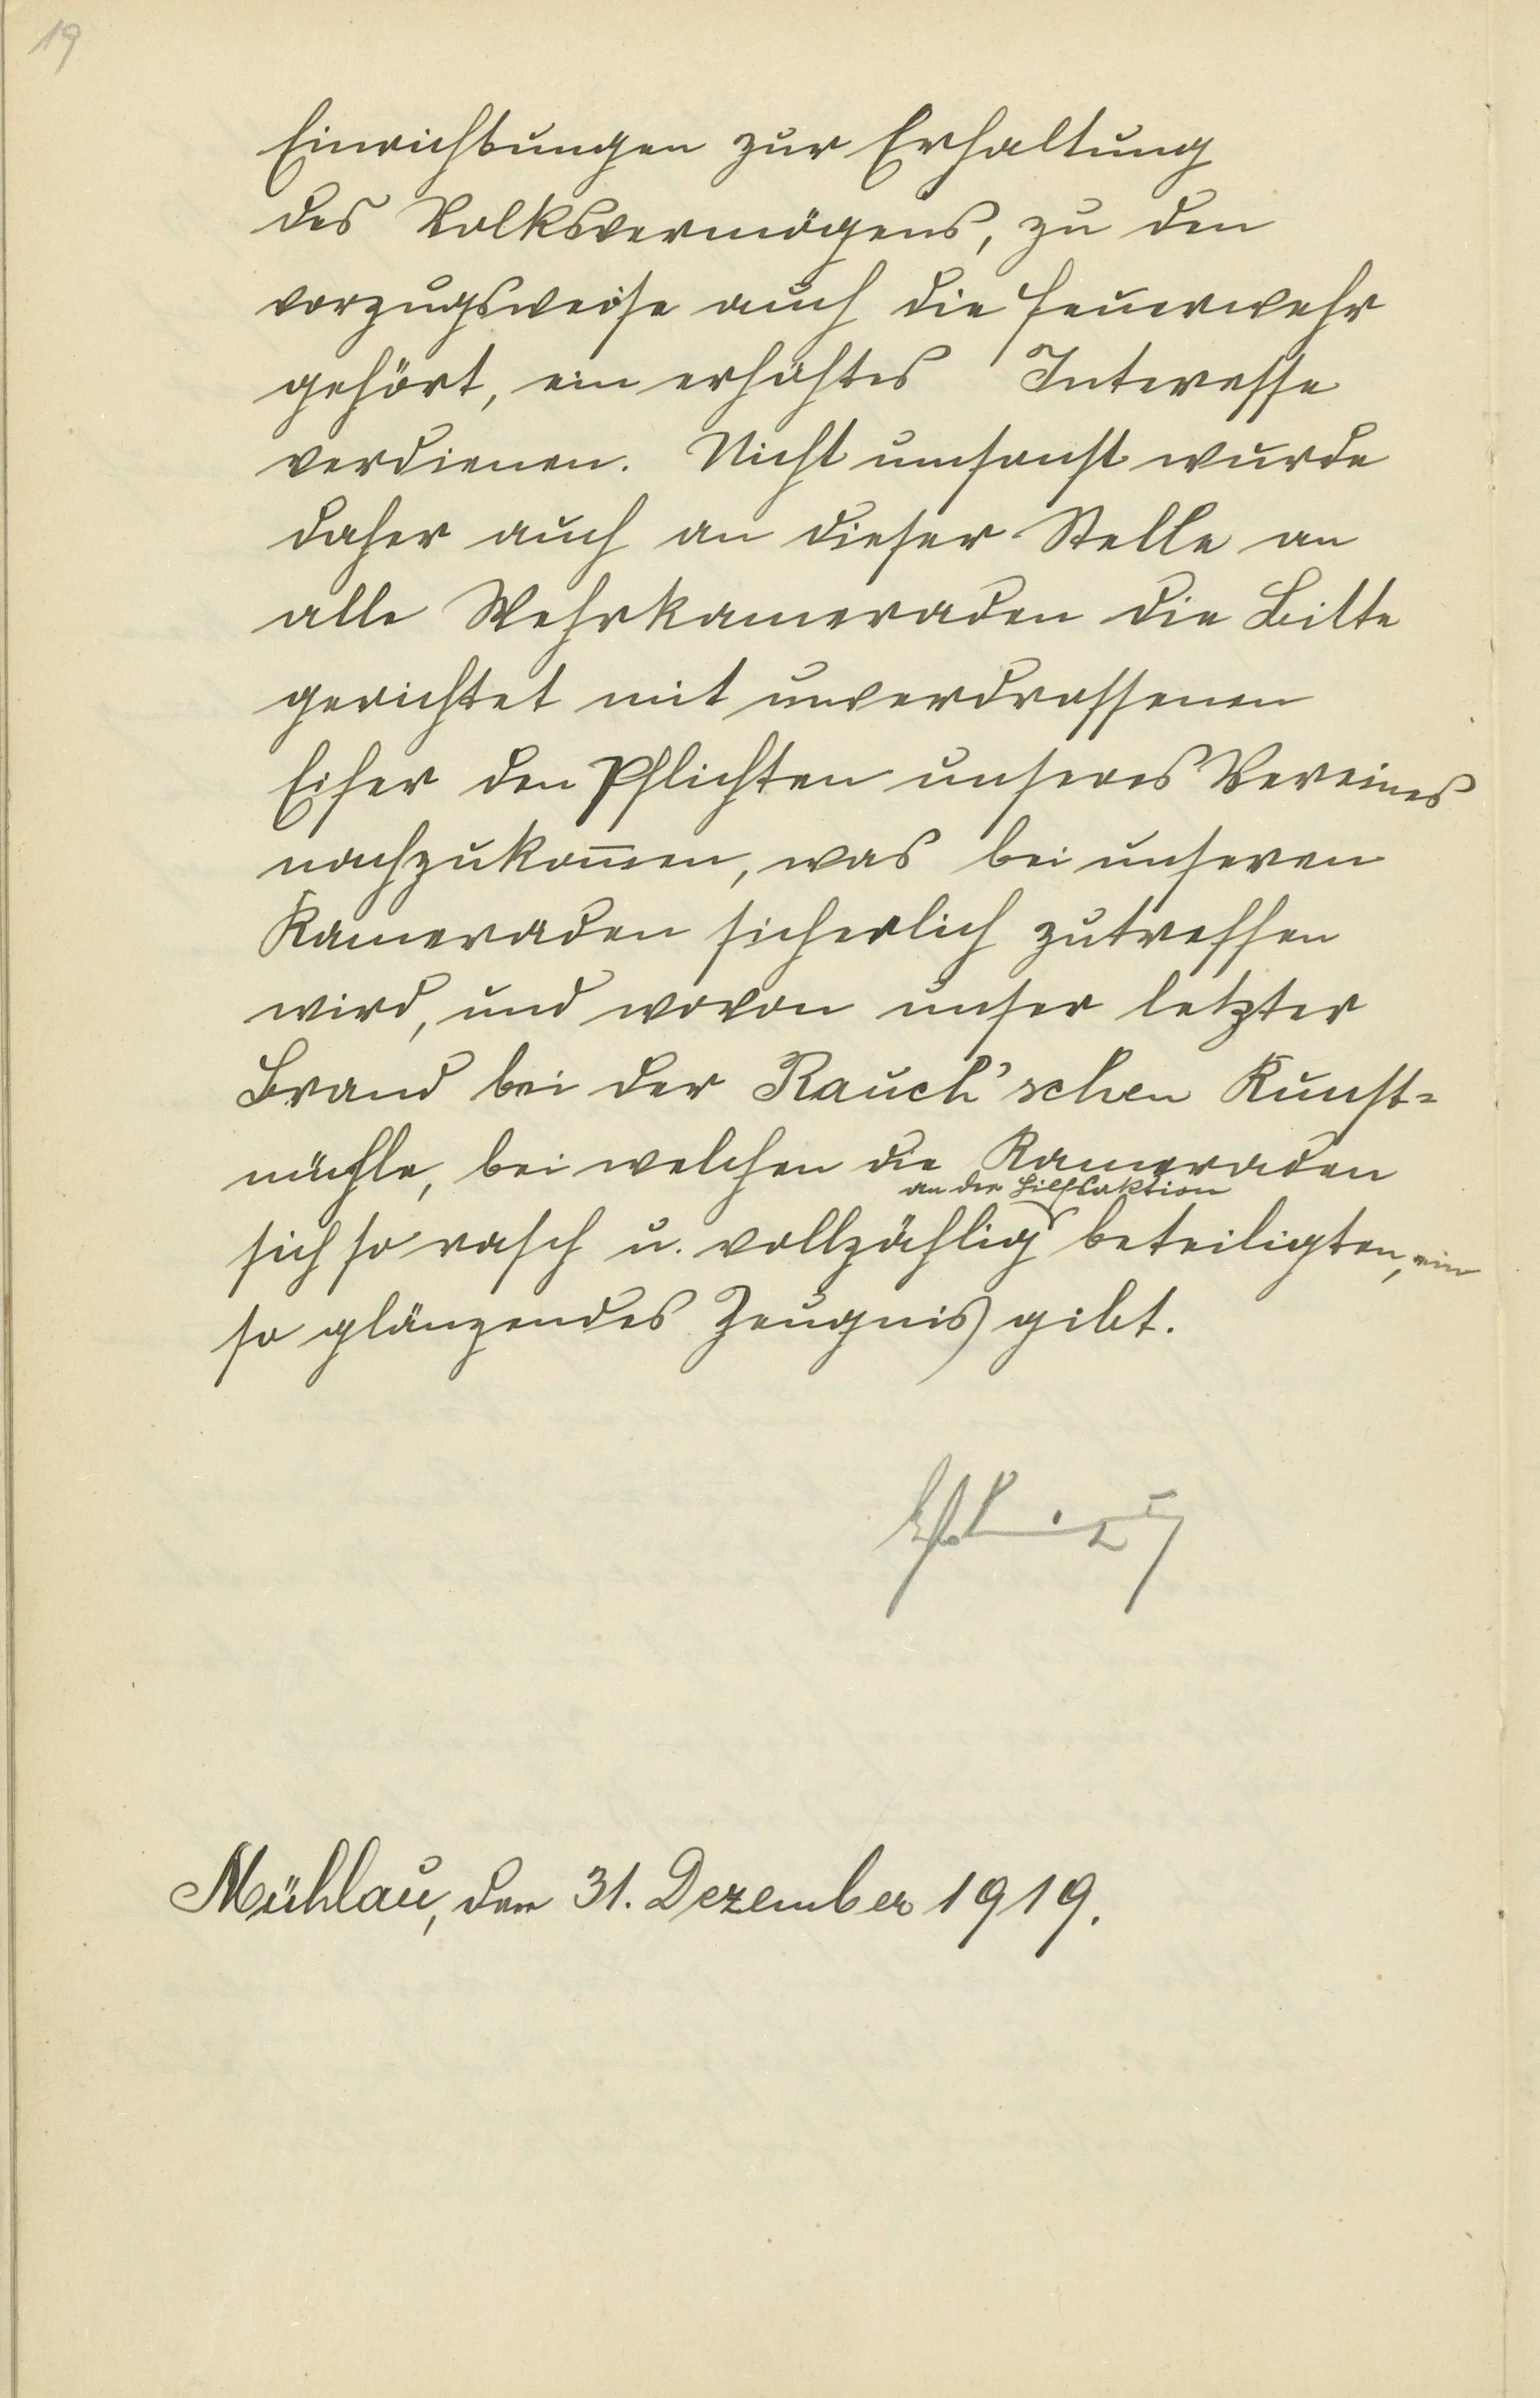 19
Einrichtungen zur Erhaltung
des Volksvermögens, zu den
vorzugsweise auch die Feuerwehr
gehört, ein erhöhtes Interesse
verdienen. Nicht umsonst wurde
daher auch an dieser Stelle an
alle Wehrkameraden die Bitte
gerichtet mit unverdrossenen
Eifer den Pflichten unseres Vereines
nachzukom̅en, was bei unseren
Kameraden sicherlich zutreffen
wird, und wovon unser letzter
Brand bei der Rauch'schen Kunst=
mühle, bei welchen die Kameraden
an der Hilfsaktion
sich so rasch u. vollzählig beteiligten, ein
so glänzendes Zeugnis gibt.
Mühlau, den 31. Dezember 1919.